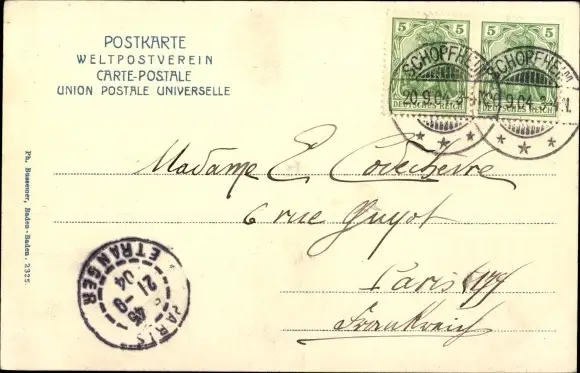 POSTKARTE
WELTPOSTVEREIN
CARTE-POSTALE
UNION POSTALE UNIVERSELLE
5 5 5 5
SCHOPFHEIM SCHOPFHEIM
20.9.04. 20.9.04. 3-4 N.
DEUTSCHES REICH DEUTSCHES REICH
Madame E
6 rue Guyot
Paris
Frankreich
Ph. Bussemer, Baden-Baden. 2325.
PARIS ETRANGER
21-9
04